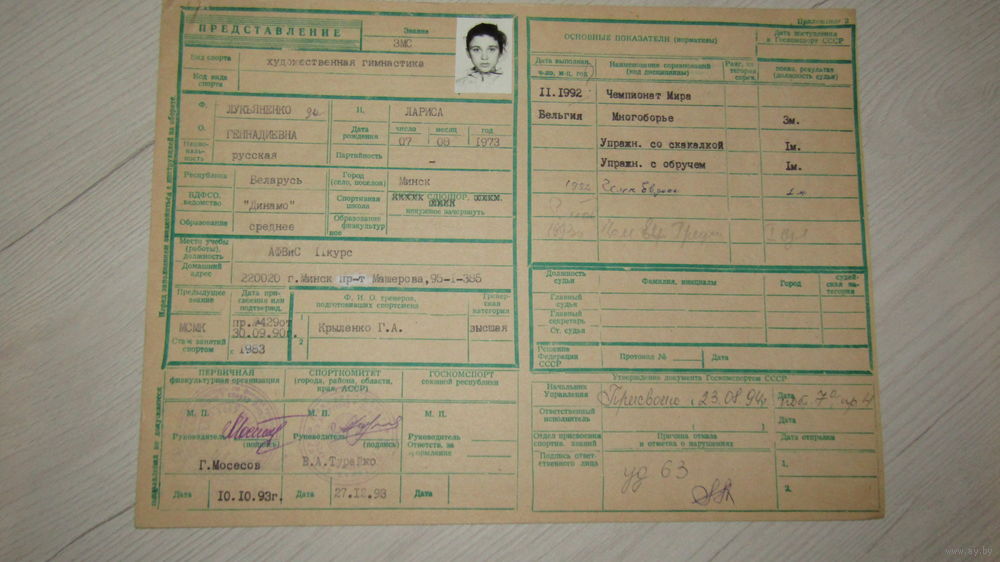 ПРЕДСТАВЛЕНИЕ
Звание
ЗМС
Вид спорта
художественная гимнастика
Код вида спорта
Ф.
ЛУКЬЯНЕНКО
И.
ЛАРИСА
О.
ГЕННАДИЕВНА
Дата рождения
число месяц год
07 08 1973
Национальность
русская
Партийность
-
Республика
Беларусь
Город (село, поселок)
Минск
ВДФСО, ведомство
"Динамо"
Спортивная школа
ненужное зачеркнуть
Образование
среднее
Образование физкультурное
Место учебы (работы), должность
АФВиС II курс
Домашний адрес
220020 г.Минск пр-т Машерова,95-1-385
Предыдущее звание
Дата присвоения или подтвержд.
Ф. И. О. тренеров, подготовивших спортсмена
Тренерская категория
МСМК
пр.№429от
30.09.90г.
Крыленко Г.А.
высшая
Стаж занятий спортом
с 1983
2
ПЕРВИЧНАЯ
физкультурная организация
СПОРТКОМИТЕТ
(города, района, области, края, АССР)
ГОСКОМСПОРТ
союзной республики
М. П.
М. П.
М. П.
Руководитель
(подпись)
Руководитель
(подпись)
Руководитель
Ответств. за оформление
Г.Мосесов
В.А.Турейко
Дата
10.10.93г.
Дата
27.12.93
Дата
Приложение 2
ОСНОВНЫЕ ПОКАЗАТЕЛИ (нормативы)
Дата поступления в Госкомспорт СССР
Дата выполнен.
число, м-ц, год
Наименование соревнований (вид дисциплины)
Ранг, категория сорев.
показ. результат (должность судьи)
II.1992
Чемпионат Мира
Бельгия
Многоборье
3м.
Упражн. со скакалкой
1м.
Упражн. с обручем
1м.
Должность судьи
Фамилия, инициалы
Город
судейская категория
Главный судья
Главный секретарь
Ст. судья
Решение Федерации СССР
Протокол №
Дата
Утверждение документа Госкомспортом СССР
Начальник Управления
Присвоено 23.08.94г
Дата
Ответственный исполнитель
( )
Дата
Отдел присвоения спортив. званий
Причина отказа и отметка о нарушениях
Дата отправки
Подпись ответственного лица
уд 63
1.
2.
www.ay.by